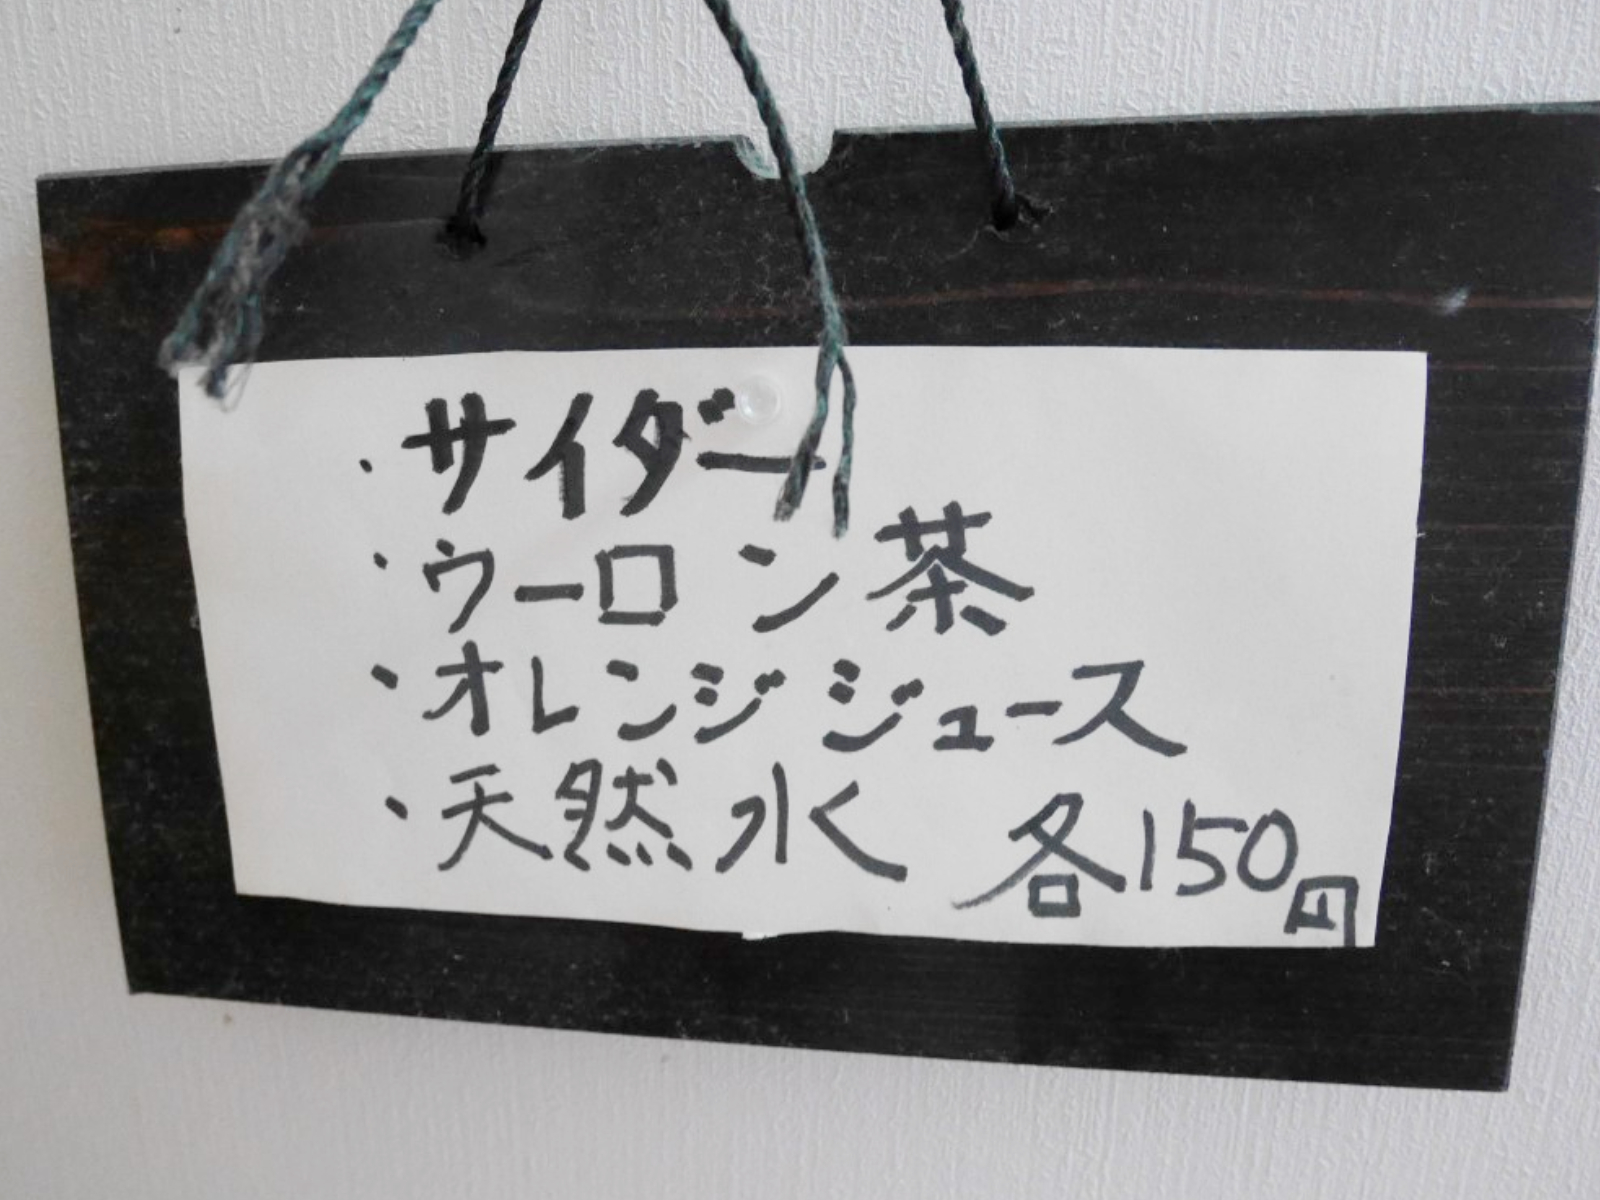 ・サイダー
・ウーロン茶
・オレンジジュース
・天然水 各150円